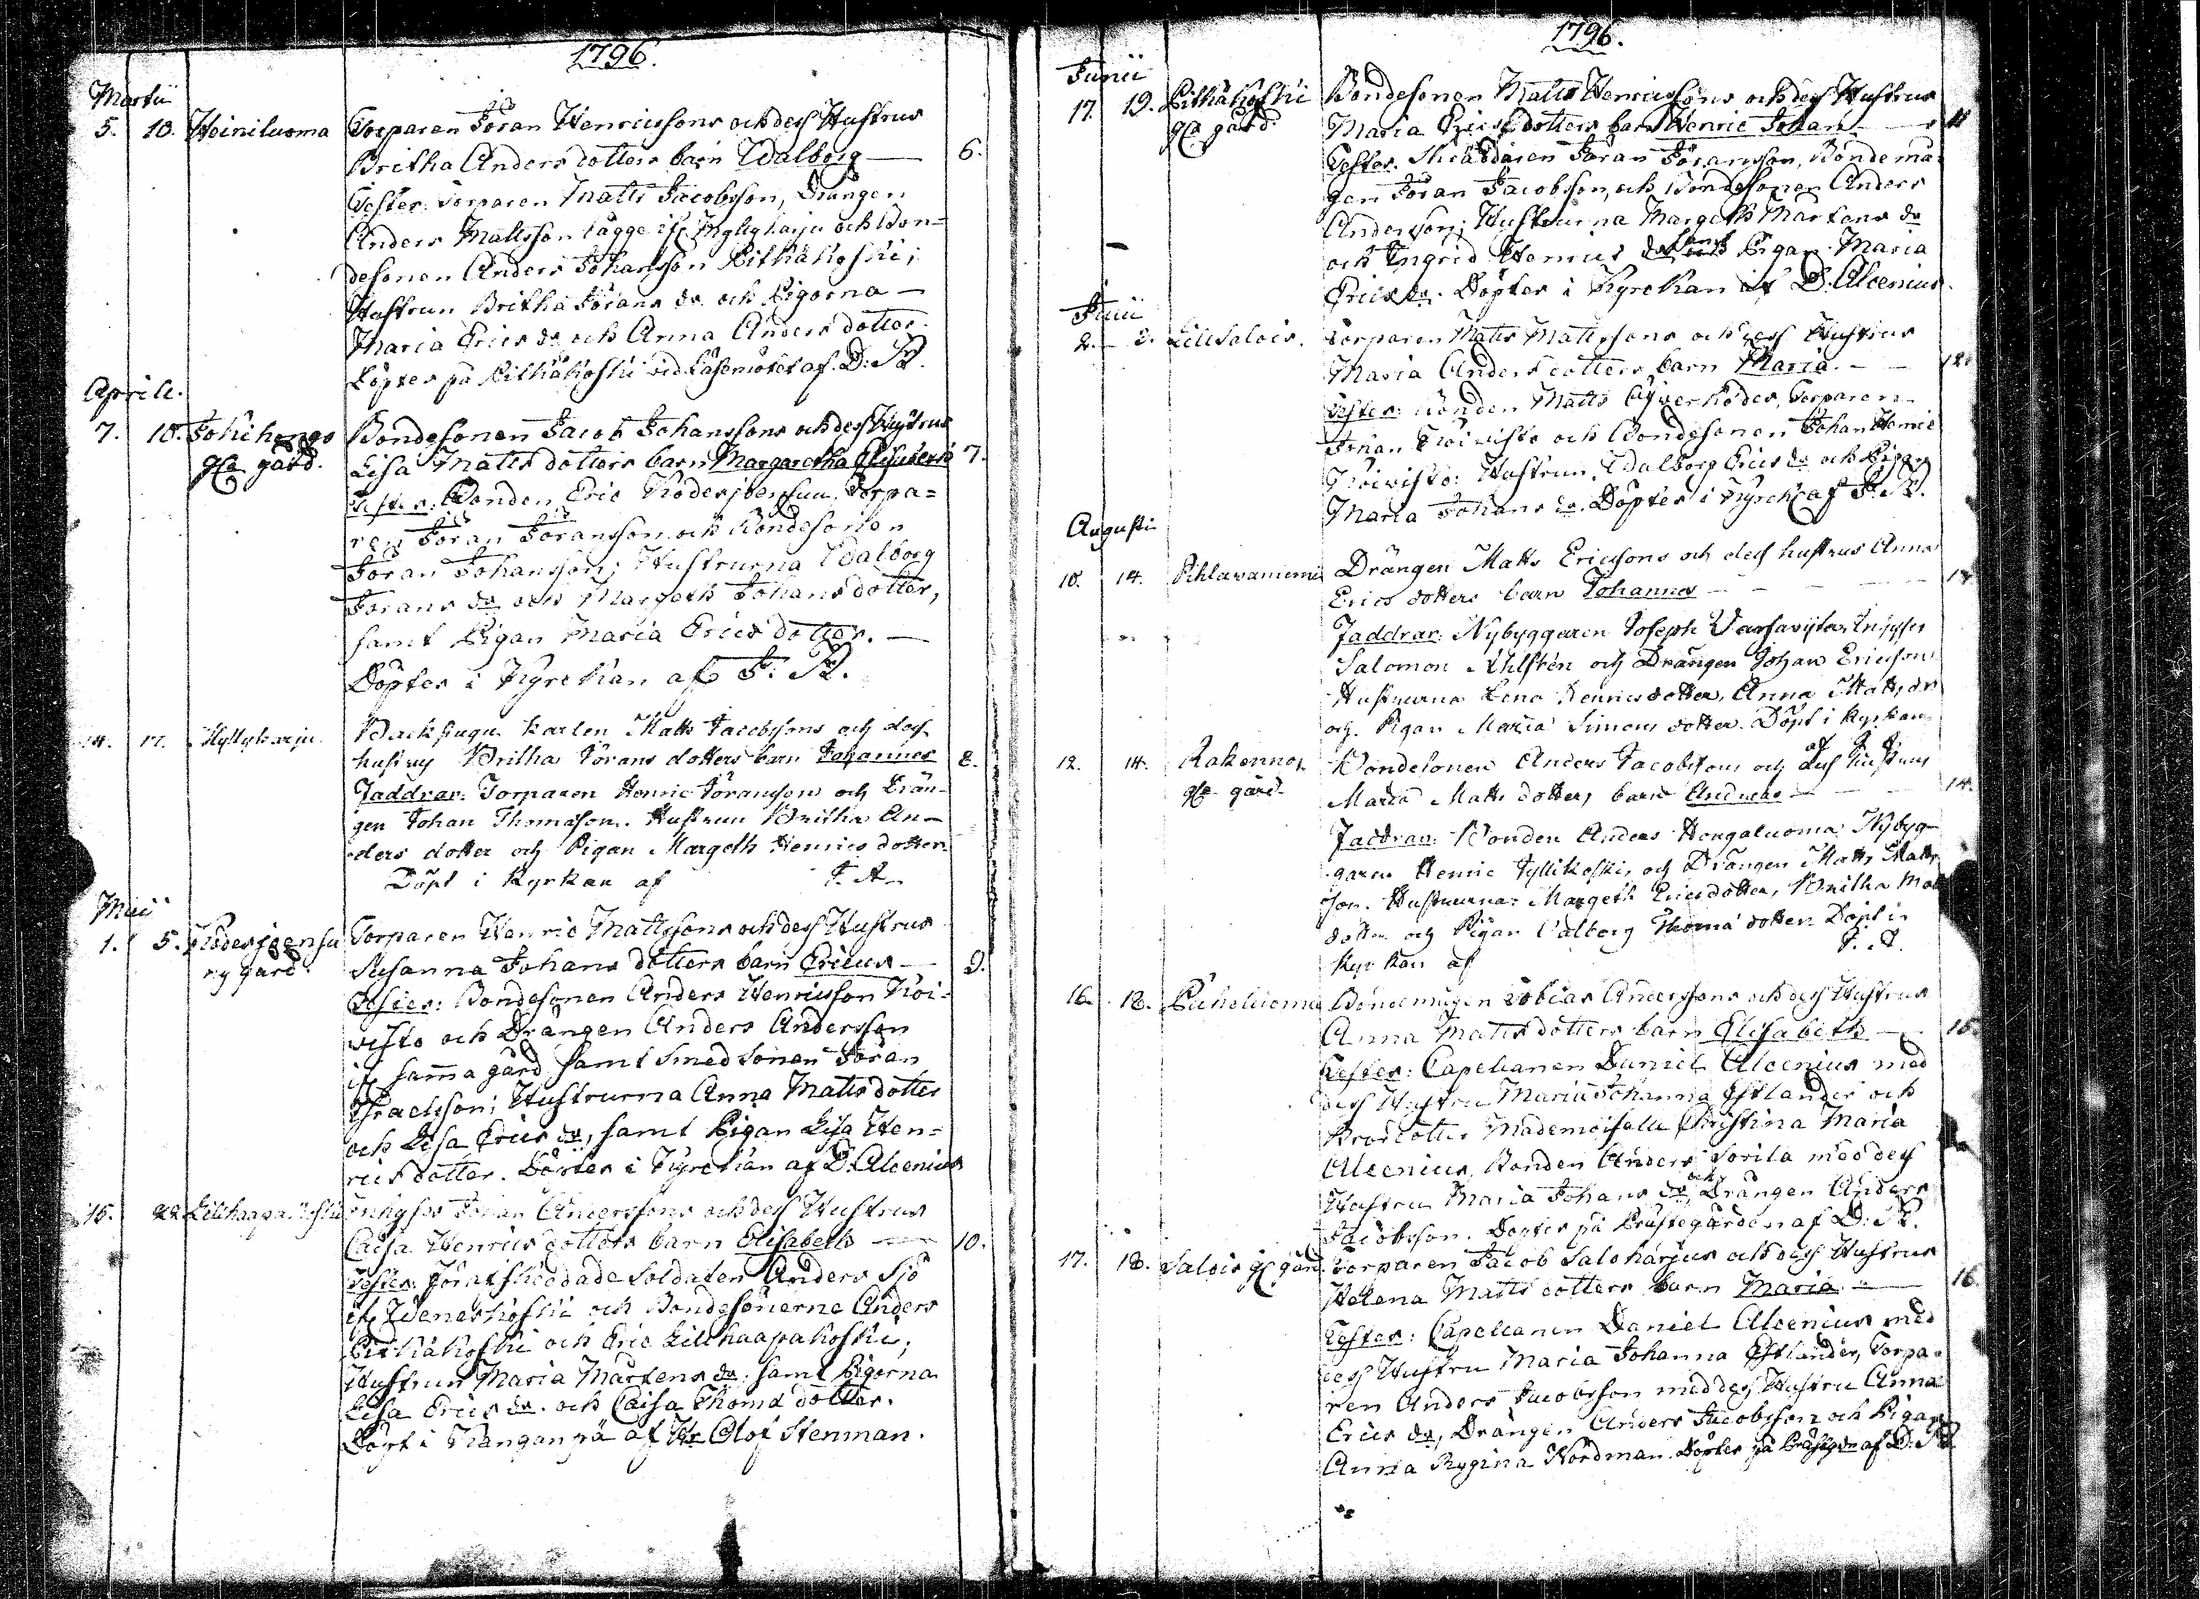 1796.
Martii
5. 10. Heiniluoma Torparen Jöran Henricssons och dess Hustrus
Britha Andersdotters barn Walborg — 6.
Tester: Torparen Matts Jacobsson, Drängen
Anders Mattsson bägge ifr. Myllykarju och Bon=
desonen Anders Johansson Pithkäkoski;
Hustrun Britha Jörans dr och Pigorna —
Maria Erics dr och Anna Anders dotter.
Döptes på Pithkäkoski vid Läsemötet af D: K.
Aprilis.
7. 10. Jokihanga Bondesonen Jacob Johanssons och dess Hustrus
gla gård. Lisa Matts dotters barn Margaretha Elisabeth 7.
Tester: Bonden Eric Födesjoensuu, Torpa=
ren Jöran Jöransson och Bondesonen
Jöran Johansson; Hustrurna Walborg
Jörans dr och Margeth Johans dotter,
samt Pigan Maria Erics dotter. —
Döptes i Kyrckan af J. K.
14. 17. Myllykarju Backstugu karlen Matts Jacobssons och dess
hustrus Britha Jörans dotters barn Johannes 8.
Faddrar: Torparen Henric Jöransson och Drän-
gen Johan Thomasson. Hustrun Britha An-
ders dotter och Pigan Margeth Henrics dotter.
Döpt i Kyrkan af J. A.
Maji
1. 5. Födesjoensu Torparen Henric Mattssons och dess Hustrus
ny gård. Susanna Johans dotters barn Ericus — 9.
Tester: Bondesonen Anders Henricsson Koi=
visto och Drängen Anders Andersson
ifr samma gård samt Smedsonen Jöran
Israelsson; Hustrurna Anna Matts dotter
och Lisa Erics dr, samt Pigan Lisa Hen=
rics dotter. Döptes i Kyrckan af D. Alcenius
15. 22. Lillhaapakoski Inhyses Johan Anderssons och dess Hustrus
Caisa Henrics dotters barn Elisabeth — 10.
Tester: Förafskedade Soldaten Anders Sjö
ifr Wenetkoski och Bondesönerne Anders
Pithkäkoski och Eric Lillhaapakoski;
Hustrun Maria Mårtens dr: samt Pigorna
Lisa Erics dr. och Caisa Thomä dotter.
Döpt i Kanganpä af Hr Olof Stenman.
1796.
Junii
17. 19. Pithkäkoski Bondesonen Matts Henricssons och dess Hustrus
gla gård. Maria Ericsdotters barn Henric Johan — 11
Tester. Skräddaren Jöran Jöransson, Bondemå-
gen Jöran Jacobsson, och Bondesonen Anders
Andersson; Hustrurna Margeth Mårtens dr
och Ingrid Henrics dr samt Pigan Maria
Erics dr. Döptes i Kyrckan af D. Alcenius.
Julii
2. 3. Lillsalois. Torparen Matts Mattssons och dess Hustrus
Maria Anders dotters barn Maria. — 12.
Tester: Bonden Matts Yliködes, Torparen
Johan Koivisto och Bondesonen Johan Henric
Koivisto: Hustrun Walborg Erics dr och Pigan
Maria Johans dr. Döptes i Kyrck: af J. K.
Augusti
10. 14. Pihlavaniemi Drängen Matts Ericsons och dess hustrus Anna
Erics dotters barn Johannes — 13
Faddrar: Nybyggaren Joseph Inhyses
Salomon Ahlstén och Drängen Johan Ericsson
Hustrurna Lena Henricsdotter, Anna Matts dr
och Pigan Maria Simons dotter. Döpt i Kyrkan
af J. A.
12. 14. Rahkonnen Bondesonen Anders Jacobssons och dess hustrus
gla gård. Maria Matts dotters barn Andreas — 14.
Faddrar: Bonden Anders Hongaluoma Nybyg-
garen Henric Jyllikoski, och Drängen Matts Matts
son. Hustrurna: Margeth Ericsdotter, Britha Matts
dotter och Pigan Valborg Thoma dotter. Döpt i
Kyrkan af J. A.
16. 18. Puheluoma Bondemågen Tobias Anderssons och dess Hustrus
Anna Matts dotters barn Elisabeth — 15.
Tester: Capellanen Daniel Alcenius med
dess Hustru Maria Johanna Estlander och
Brordotter Mademoiselle Christina Maria
Alcenius, Bonden Anders Sorila med dess
Hustru Maria Johans dr, och Drängen Anders
Jacobsson. Döptes på Prästegården af D: K.
17. 18. Salois gl gård. Torparen Jacob Saloharjus och dess Hustrus
Helena Matts dotters barn Maria — 16.
Tester: Capellanen Daniel Alcenius med
dess Hustru Maria Johanna Estlander, Torpa-
ren Anders Jacobsson med dess Hustru Anna
Erics dr, Drängen Anders Jacobsson och Pigan
Anna Regina Nordman. Döptes på Prästg:dn af D: K.